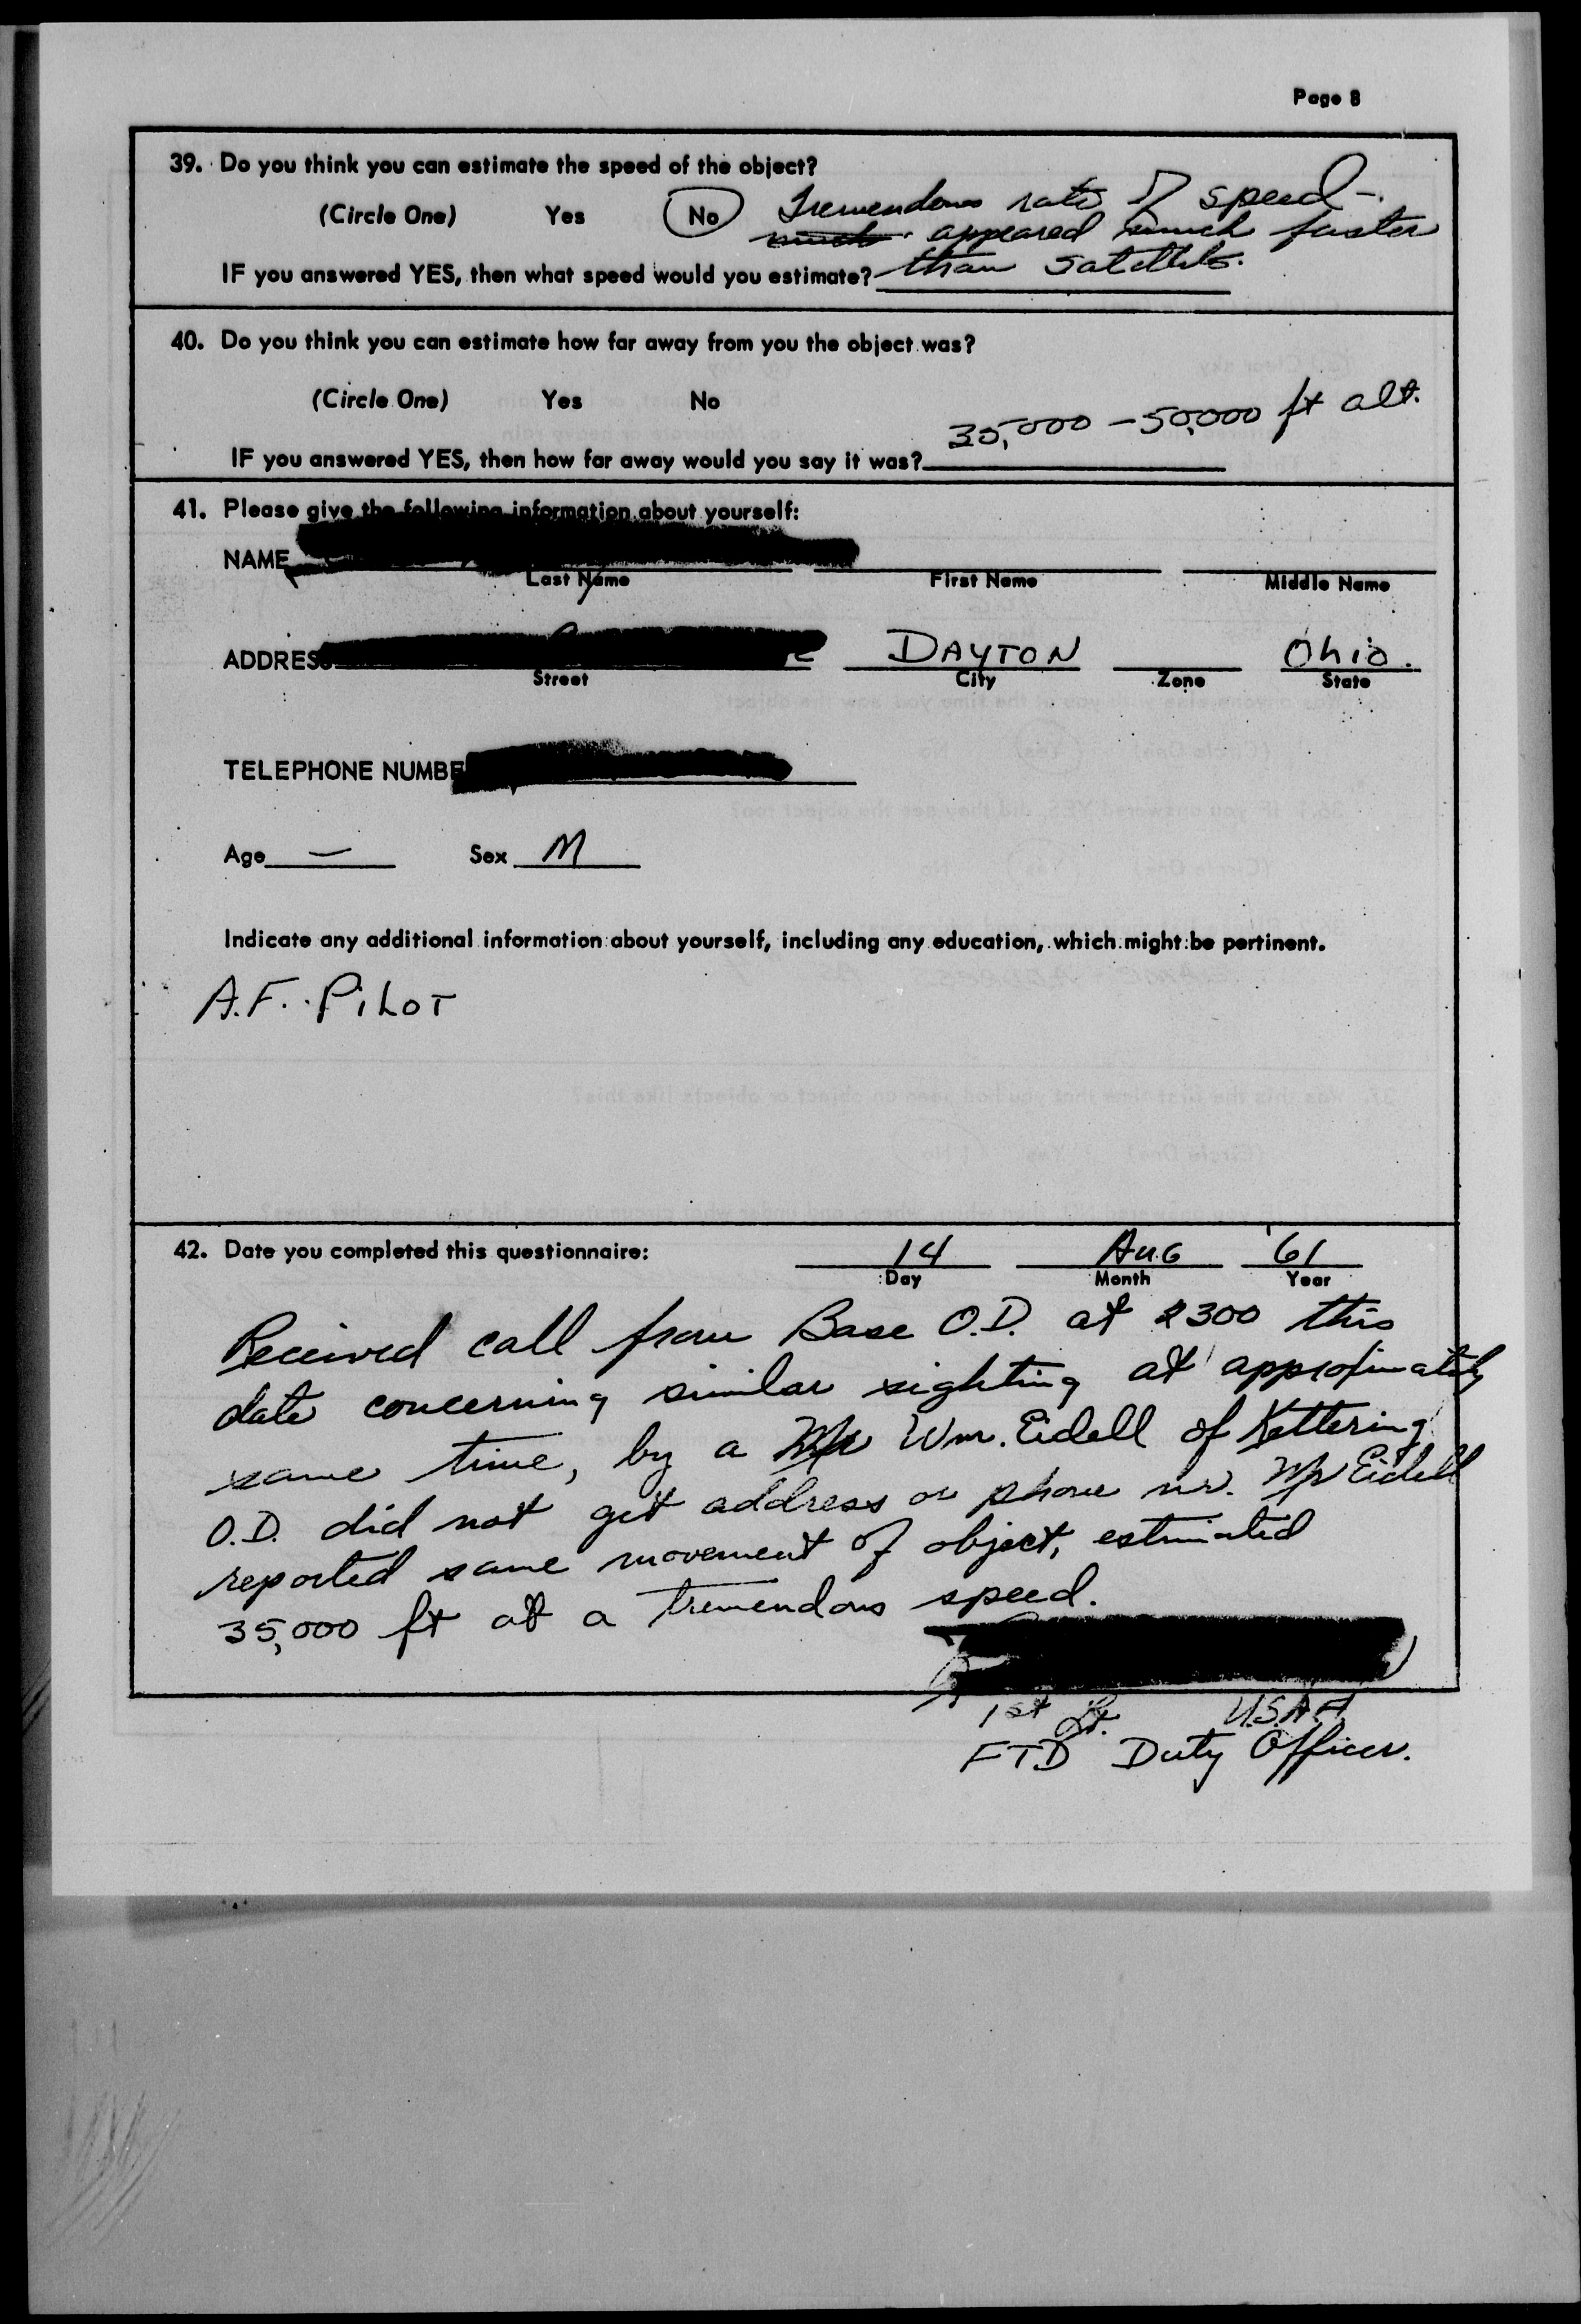 Page 8
39. Do you think you can estimate the speed of the object?
(Circle One) Yes No Tremendous rate of speed -
much appeared much faster
IF you answered YES, then what speed would you estimate? than satellite.
40. Do you think you can estimate how far away from you the object was?
(Circle One) Yes No
35,000 - 50,000 ft alt.
IF you answered YES, then how far away would you say it was?
41. Please give the following information about yourself:
NAME
Last Name First Name Middle Name
ADDRESS DAYTON Ohio.
Street City Zone State
TELEPHONE NUMBE
Age — Sex M
Indicate any additional information about yourself, including any education, which might be pertinent.
A.F. PiLOT
42. Date you completed this questionnaire: 14 Aug '61
Day Month Year
Received call from Base O.D. at 2300 this
date concerning similar sighting at approximately
same time, by a Mr Wm. Eidell of Kettering
O.D. did not get address or phone nr. Mr Eidell
reported same movement of object, estimated
35,000 ft at a tremendous speed.
1st Lt. U.S.A.F.
FTD Duty Officer.